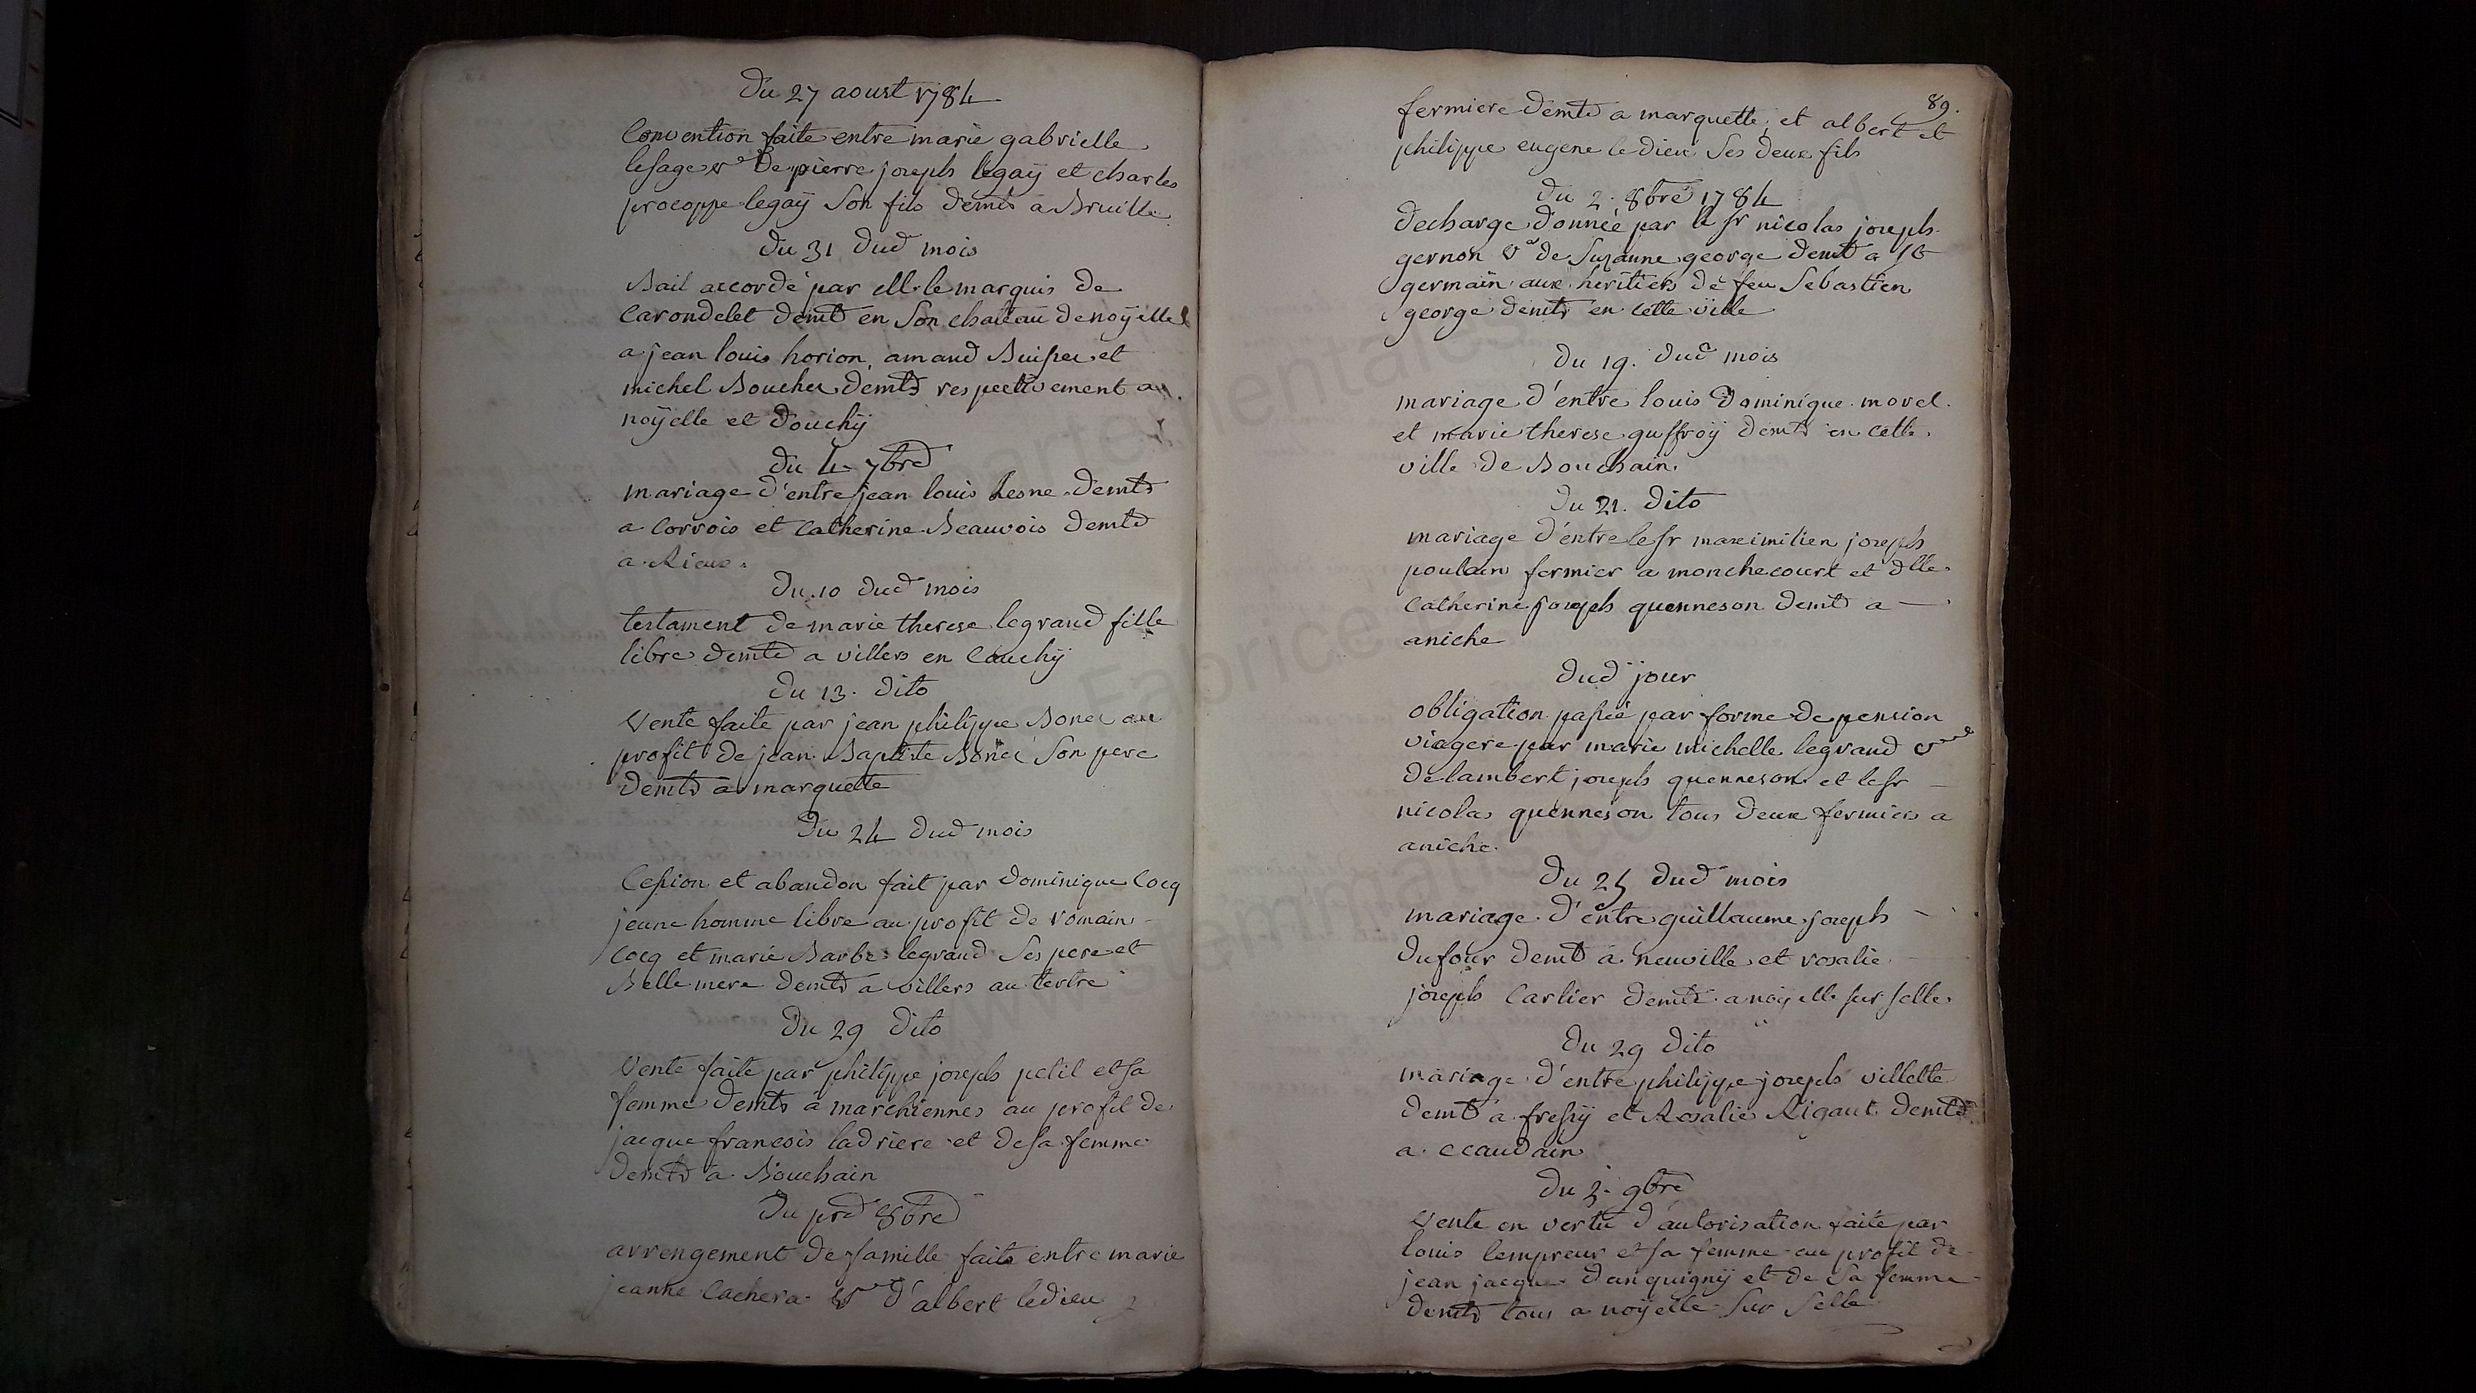 Du 27 aoust 1784
Convention faite entre marie gabrielle
lesage ve De pierre joseph legaÿ et charles
procoppe legaÿ Son fils demts a Bruille
Du 31 dud mois
Bail accordé par le marquis de
Carondelet demt en Son chateau de noÿelle
a jean louis horion, amand et
michel Boucher demts respectivement a
noÿelle et Douchÿ
Du 4 7bre
mariage d'entre jean louis Lesne demt
a Corrois et Catherine Beauvois demte
a Rieux.
Du 10 dud mois
testament de marie therese legrand fille
libre demte a villers en Cauchÿ
Du 13. dito
Vente faite par jean philippe Bonez au
profit de jean Baptiste Bonez Son pere
demts a marquette
Du 24 dud mois
Cession et abandon fait par Dominique Cocq
jeune homme libre au profit de romain
Cocq et marie Barbe legrand Ses pere et
Belle mere demts a villers au tertre
Du 29 dito
Vente faite par philippe joseph petit et sa
femme demts a marchiennes au profit de
jacque francois ladriere et de sa femme
demts a Bouchain
Du pr 8bre
arrengement de famille faite entre marie
jeanne Cachera ve d'albert ledieu
89.
fermiere demte a marquette, et albert et
philippe eugene le dieu Ses deux fils
Du 2. 8bre 1784
Decharge donnée par le sr nicolas joseph
gernon ve de Suzanne george demt a st
germain aux héritiers de feu Sebastien
george demts en cette ville
Du 19. dud mois
mariage d'entre louis Dominique morel
et marie therese guffroÿ demts en cette
ville de Bouchain.
Du 21. dito
mariage d'entre le sr maximilien joseph
poulain fermier a monchecourt et dlle
Catherine joseph quenneson demte a
aniche
Dud jour
obligation passée par forme de pension
viagere par marie michelle legrand ve
de lambert joseph quenneson et le sr
nicolas quenneson tous deux fermiers a
aniche.
Du 25 dud mois
mariage d'entre guillaume joseph
Dufour demt a neuville et rosalie
joseph Carlier demte a noÿelle sur selle
Du 29 dito
mariage d'entre philippe joseph villette
demt a fressÿ et Rosalie Rigaut demte
a ecaudain
Du 3. 9bre
Vente en vertu d'autorisation faite par
louis lempreur et sa femme au profit de
jean jacque danquignÿ et de Sa femme
demts tous a noÿelle Sur Selle